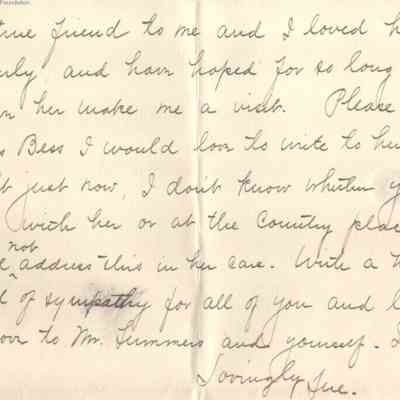 Foundation.
true friend to me and I loved h
and have hoped for so long
her make me a visit. Please
Bess I would love to write to her
just now, I don't know whether y
with her or at the Country plac
not
address this in her care. With a h
of sympathy for all of you and l
love to Mr. Summers and yourself. I
Lovingly Sue.